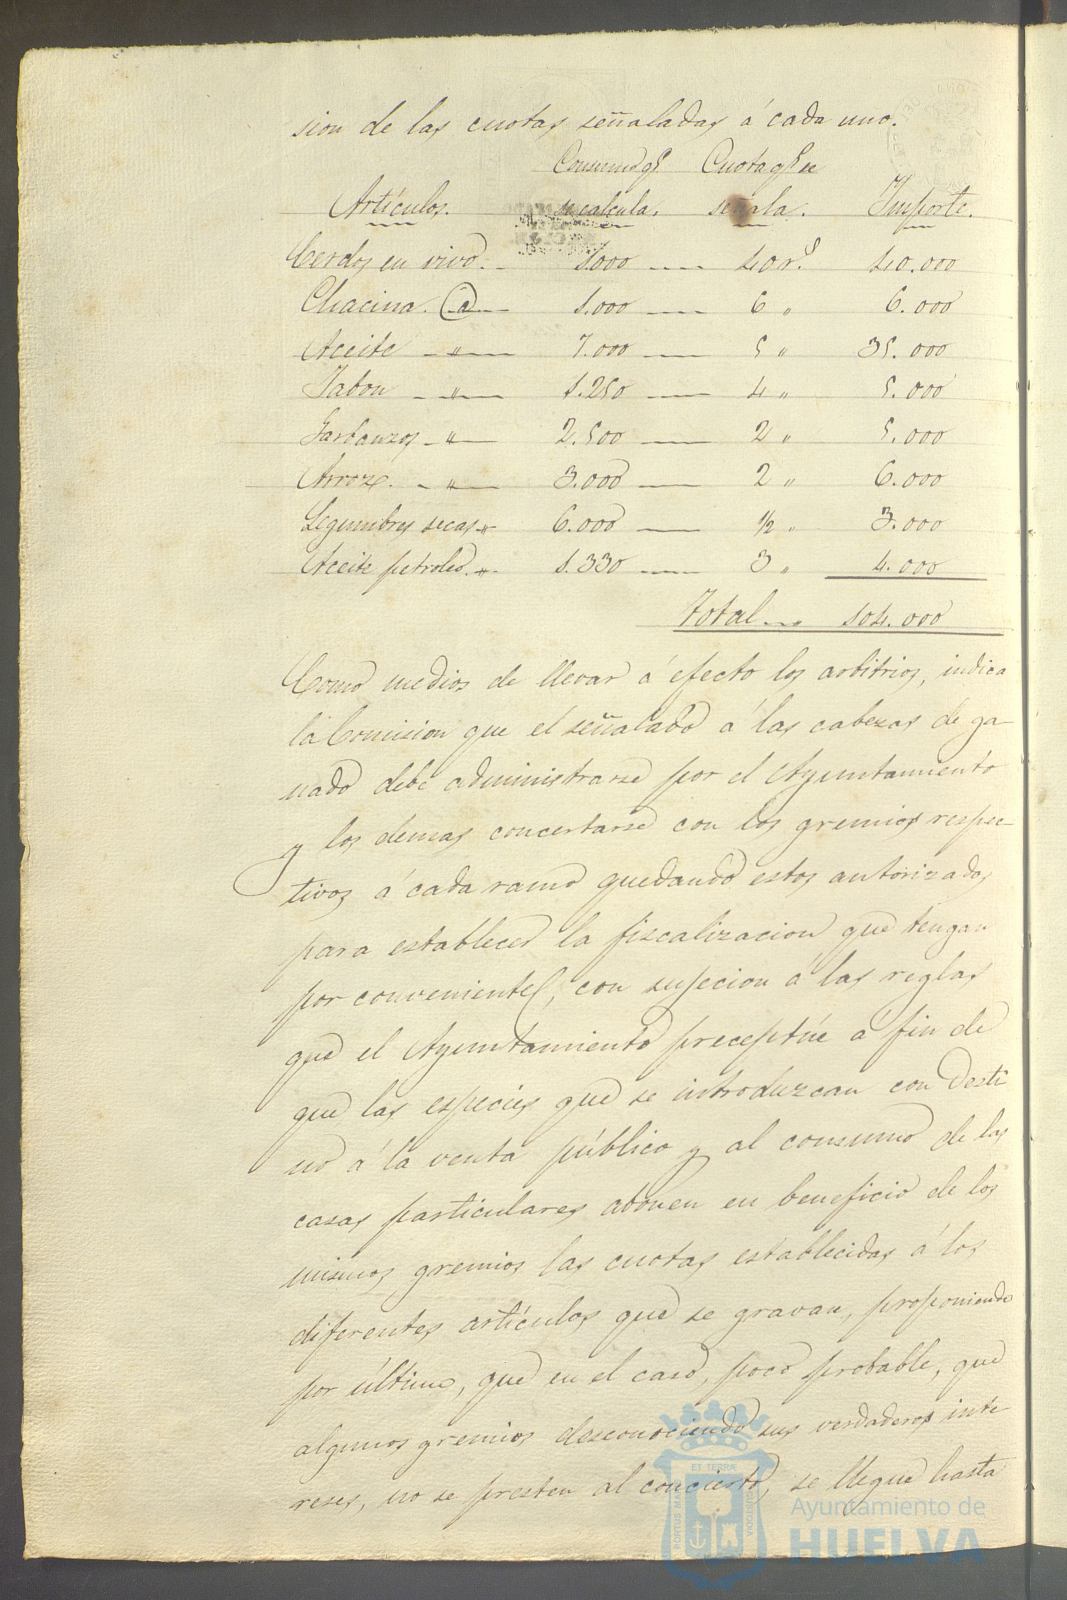 sion de las cuotas señaladas á cada uno.
Consumo q.e Cuota q.e se
Artículos. se calcula. señala. Importe.
Cerdos en vivo. 1.000 40 r.s 40.000
Chacina. @ 1.000 6 " 6.000
Aceite " 7.000 5 " 35.000
Jabon " 1.250 4 " 5.000
Garbanzos " 2.500 2 " 5.000
Arroz. " 3.000 2 " 6.000
Legumbres secas " 6.000 1/2 " 3.000
Aceite petroleo. " 1.330 3 " 4.000
Total 104.000
Como medios de llevar á efecto los arbitrios, indica
la Comision que el señalado á las cabezas de ga-
nado debe administrarse por el Ayuntamiento
y los demas concertarse con los gremios respec-
tivos á cada ramo quedando estos autorizados
para establecer la fiscalizacion que tengan
por conveniente, con sujecion á las reglas
que el Ayuntamiento preceptúe á fin de
que las especies que se introduzcan con desti
no á la venta pública y al consumo de las
casas particulares abonen en beneficio de los
mismos gremios las cuotas establecidas á los
diferentes artículos que se gravan, proponiendo
por último, que en el caso, poco probable, que
algunos gremios desconociendo sus verdaderos inte-
reses, no se presten al concierto, se llegue hasta
ET TERRAE
PORTUS MARIS
CUSTODIA
Ayuntamiento de
HUELVA